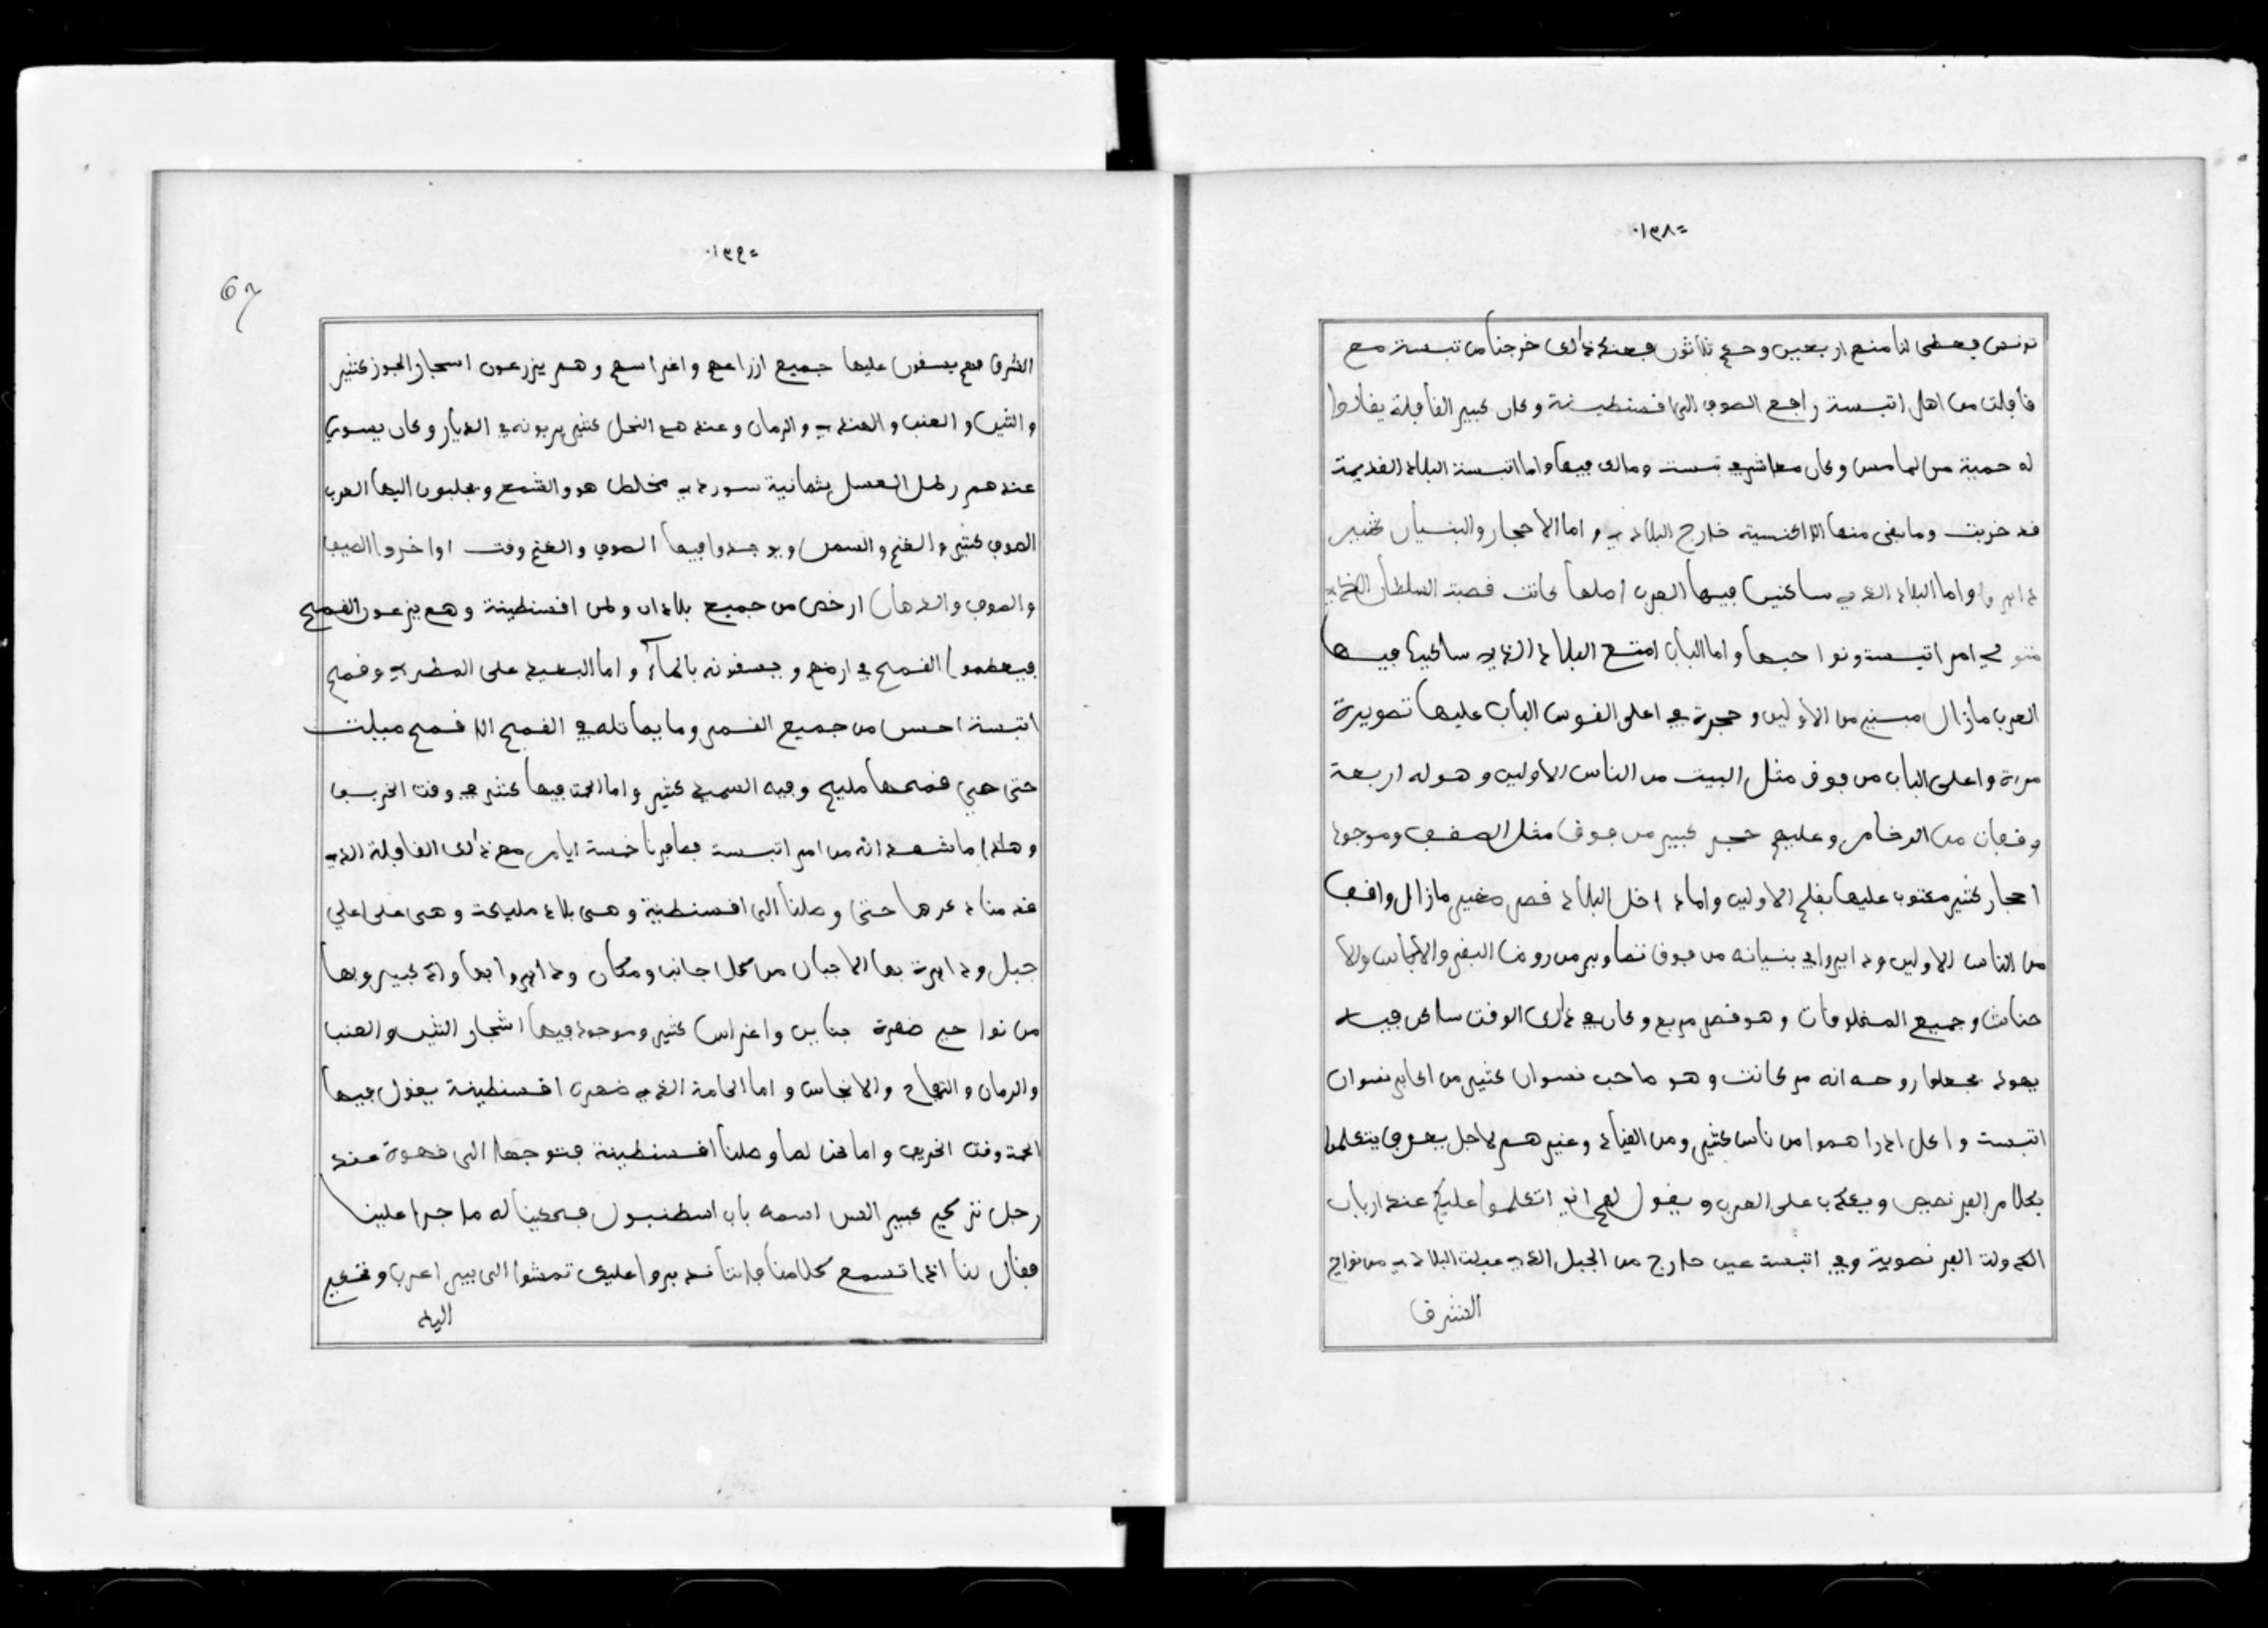 ١٣٨
تونس فعطى لنا منهم اربعين وحكم ثلاثون فعند ذالك خرجنا من تبسة مع
قافلت من اهل اتبسة رافع الصوف الى قسنطينة وكان كبير القافلة يقالوا
له حمية من لمامس وكان معاشره ومالك فيها واما اتبسة البلاد القديمة
قد خربت وما بقى منها الا الكنسية خارج البلاد واما الاحجار والبنسيان كثير
دايروا واما البلاد الذي ساكنين فيها العرب اصلها كانت قصبة السلطان الذي
متولي امر اتبسة ونواحيها واما الباب امتع البلاد الذي ساكنين فيها
العرب مازال مبني من الأولين وحجرة في اعلى القوس الباب عليها تصويرة
مرة واعلى الباب من فوق مثل البيت من الناس الاولين وهو له اربعة
وقفان من الرخام وعليهم حجر كبير من فوق مثل الصقف وموجود
احجار كثير مكتوب عليها بقلم الاولين واما داخل البلاد قصر صغير مازال واقف
من الناس الاولين ودايروا في بنسيانه من فوق تصاوير من روس البقر والا
حناش وجميع المخلوقات وهو قصر مربع وكان في ذالك الوقت ساكن فيه
يهود يجعلوا روحه انه مركانت وهو صاحب نسوان كثير من اكابر نسوان
اتبست واكل ادراهموا من ناس كثير ومن القياد وغيرهم لاجل يعرف يتكلموا
بكلام الفرنصيص ويكذب على العرب ويقول لهم اني اتكلموا عليكم عند ارباب
الدولة الفرنصوية وفي اتبست عين خارج من الجبل الذي قبلت البلاد من نواحي
الشرق
١٣٩
67
الشرق فهم يسقون عليها جميع ازراعهم واغراسهم وهم يزرعون اسجار الجوز كثير
والتين والعنب والهندي والرمان وعندهم النحل كثير يربونه في الديار وكان يسوي
عندهم رطل العسل بثمانية سوردي مخلط هو والشمع ويجلبون اليها العرب
الصوف كثير والغنم والسمن ويوجدوا فيها الصوف والغنم وقت اواخروا الصيف
والصوف والدهان ارخص من جميع بلادان وطن اقسنطينة وهم يزرعون القمح
فيعظموا القمح في ارضهم ويسقونه بالماء واما البعيد على المطر وقمح
اتبسة احسن من جميع القمح وما يماثله في القمح الا قمح مبلت
حتى هي قمحها مليح وفيه السميد كثير واما الحمة فيها كثير في وقت الخريف
وهاذا ما شهدانه من امر اتبست فصافرنا خمسة ايام مع ذالك القافلة الذي
قدمنا ذكرها حتى وصلنا الى اقسنطينة وهي بلاد مليحة وهي على اعلي
جبل ودايرة بها الاجبال من كل جانب ومكان ودايروا بها واد كبير وبها
من نواحي ضهرة جناين واغراس كثير وموجود فيها اشجار التين والعنب
والرمان والتفاح والانجاس واما الحامة الذي ضهرة اقسنطينة يقول فيها
الحمة وقت الخريف واما نحن لما وصلنا اقسنطينة فتوجهنا الى قهوة عند
رجل تركي كبير السن اسمه باب اسطنبول فحكينا له ما جرا علينا
فقال لنا اذا تسمع كلامنا فانتا ندبروا عليك تمشوا الى بيرو اعرب وتشكي
اليه